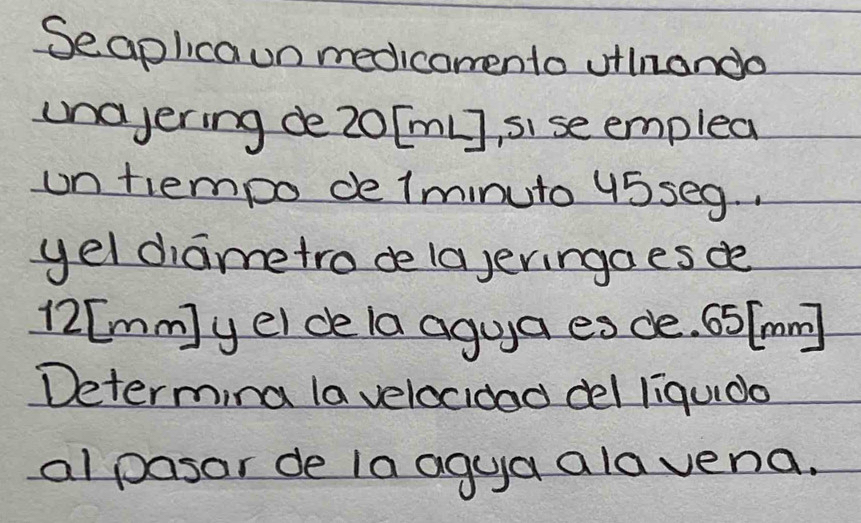 Se aplica un medicamento utlizando
una jering de 20 [mL], si se emplea
un tiempo de 1 minuto 45 seg..
y el diámetro de la jeringa es de
12 [mm] y el de la aguja es de .65 [mm]
Determina la velocidad del líquido
al pasar de la aguja a la vena.